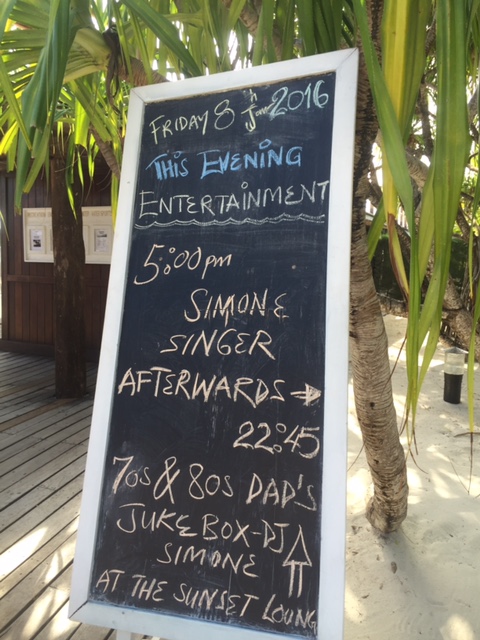 FRIDAY 8 Jan 2016
THIS EVENING
ENTERTAINMENT
5:00pm
SIMONE
SINGER
AFTERWARDS ⇒
22:45
70s & 80s DAD'S
JUKEBOX-DJ
SIMONE
AT THE SUNSET LOUNG